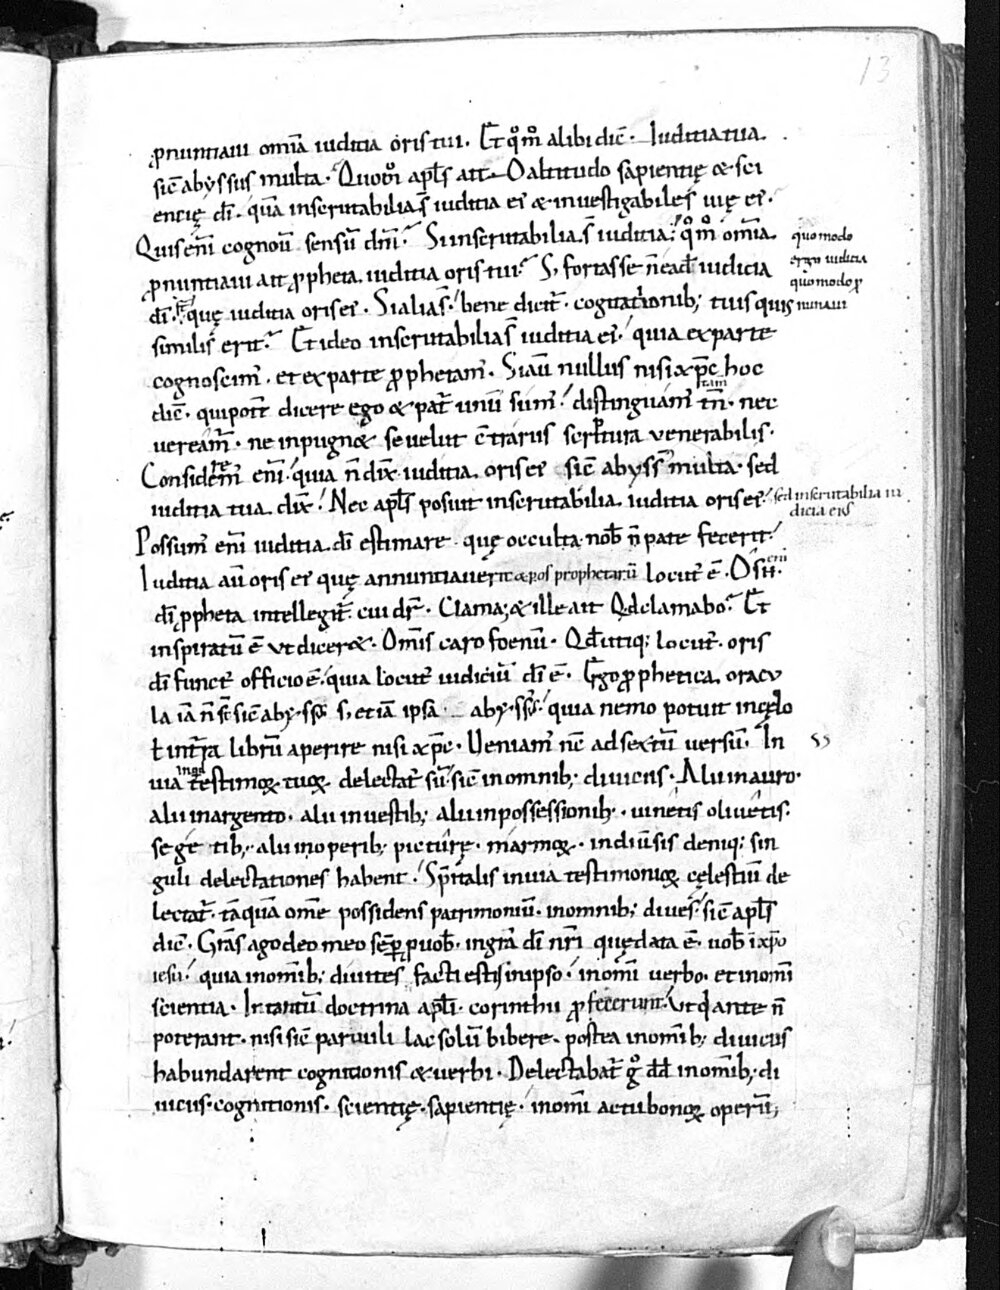 13
ꝓnuntiaui om̄ia iuditia oris tui. Et qm̄ alibi dic̄. Iuditia tua
sic̄ abyssus multa. Quom̄ apl̄s ait. O altitudo sapientię & sci
entię dī. quā inscrutabilia s̄ iuditia ei' & inuestigabiles uię ei'.
Quis enī cognouit sensū dn̄i. Si inscrutabilia s̄ iuditia. qm̄ om̄ia
ꝓnuntiaui ait ꝓpheta iuditia oris tui. S; fortasse n̄ ead̄ iudicia
quomodo
ergo iudicia
quomodo ꝓ
nuntiaui
dī. quę iuditia oris ei'. Si alia s̄. bene dicit̄. cogitationib; tuis quis
similis erit. Et ideo inscrutabilia s̄ iuditia ei'. quia ex parte
cognoscim'. et ex parte ꝓphetam'. Si aū nullus nisi xp̄c hoc
dic̄. qui pot̄ dicere ego & pat̄ unū sum'. distinguam' tn̄. nec
tam
uereām. ne inpugn& se uelut c̄trarius scriptura uenerabilis.
Considerem' enī. quia n̄ dix̄. iuditia oris ei' sic̄ abyss' multa. sed
iuditia tua dix̄. Nec apl̄s posuit inscrutabilia iuditia oris ei'.
sed inscrutabilia iu
dicia eis
Possum' enī iuditia dī estimare quę occulta nob̄ n̄ patefecerit.
Iuditia aū oris ei' quę annuntiauerit & p os prophetarū locut' ē. Os
dī ꝓpheta intellegit̄. cui dr̄. Clama; & ille ait Qd clamabo. Et
inspiratū ē ut dicer&. Om̄is caro foenū. Qd̄ utiq; locut'. oris
dī funct' officio ē. quia locut' iudiciū dī ē. Ergo ꝓphetica oracu
la iā n̄ s̄t sic̄ abyss' s; etiā ipsa abyss'. quia nemo potuit in cęlo
ł in tr̄a librū aperire nisi xp̄c. Ueniam' nc̄ ad sextū uersū. In
uia testimoꝝ tuoꝝ delectat' sū sic̄ in omnib; diuiciis. Alii in auro.
alii in argento. alii in uestib; alii in possessionib;. uinetis oliuetis.
segetib;. alii in operib; picturę. marmoꝝ. in diuersis deniq; sin
guli delectationes habent. Spiritalis in uia testimonioꝝ cęlestiū de
lectat̄. tāquā omne possidens patrimoniū. in omnib; diues. sic̄ apl̄s
dic̄. Gras̄ ago deo meo semꝑ ꝓ uob̄. in gr̄a dī n̄ri quę data ē. uob̄ ī xp̄o
iesu. quia in omib; diuites facti estis in ipso. in om̄i uerbo. et in om̄i
scientia. In tantū doctrina apl̄i. corinthii ꝓfecerunt. Ut q̄ ante n̄
poterant. nisi sic̄ paruuli lac solū bibere. postea in omib; diuiciis
habundarent cognitionis & uerbi. Delectabat' g̊ dd̄ in omib; di
uiciis. cognitionis. scientię. sapientię. in om̄i actu bonoꝝ operū;